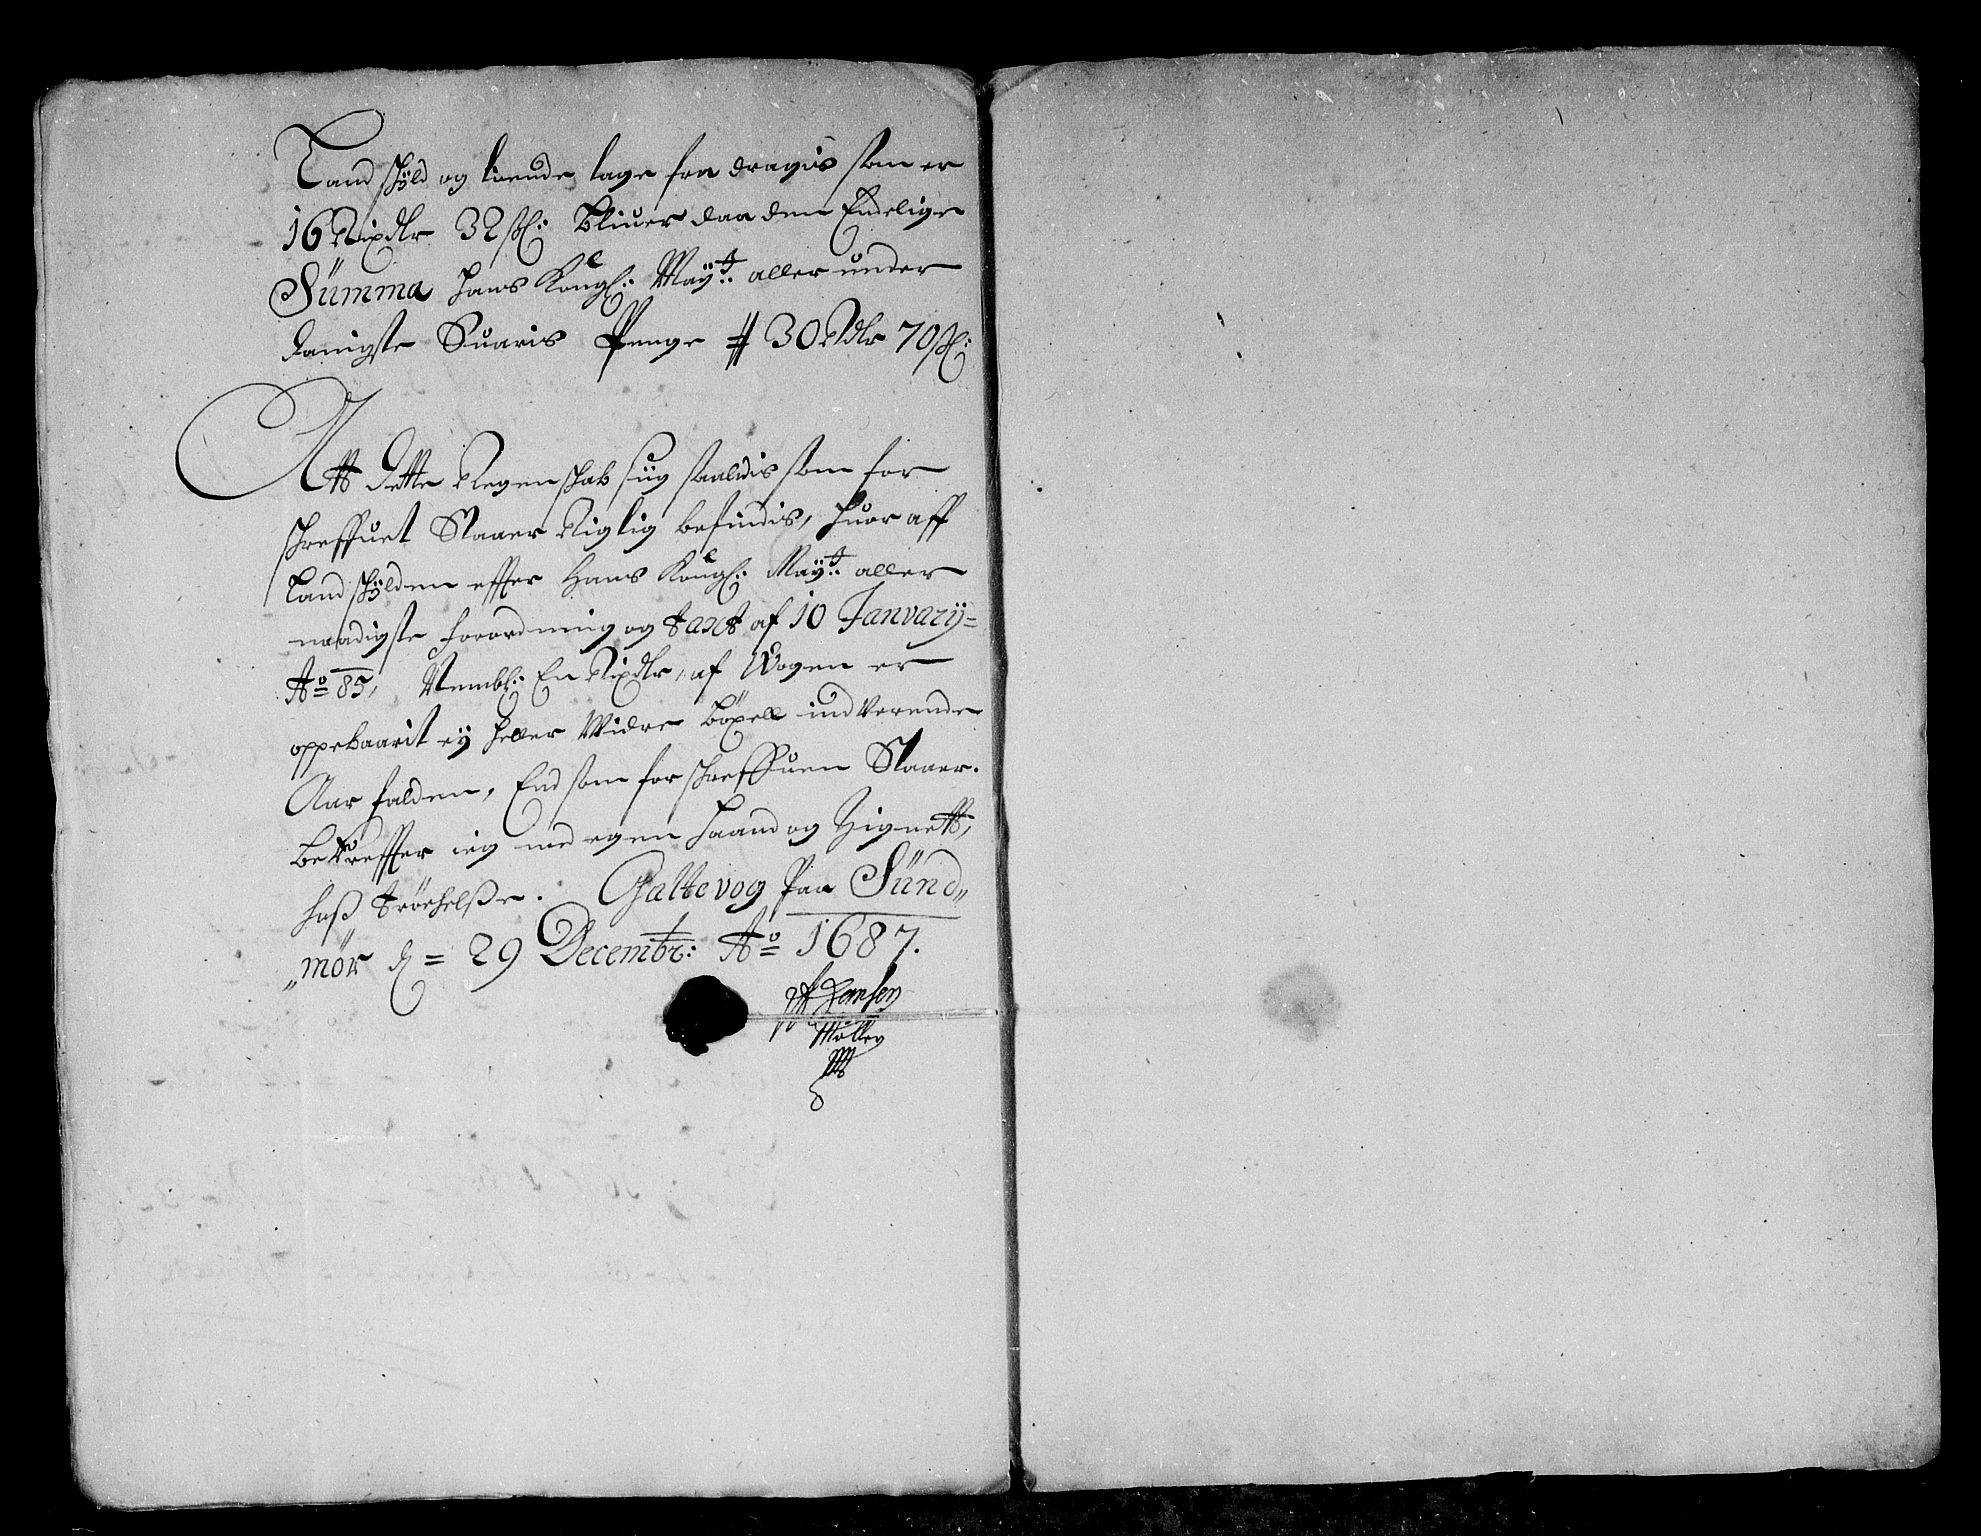 Land schÿld og tiende lage fra dragis som er
16 Rixdlr 32 sk: bliuer daa den Endelige
Summa hans Kongl: Maÿt: aller under
danigste Suaris Penge # 30 Rdlr 70 sk:
Att dette Regenschab siig saaledis som for
schreffuet Staaer Rigtig befindis, huor aff
Landschÿlden effter Hans Kongl: Maÿt: aller
naadigste forordning og taxt af 10 Januarÿ=
Ao 85, Nembl: En Rixdlr, af Wogen er
oppebaarit eÿ heller Widre böxell ind verende
Aar falden, End som for schreffuen Staaer.
be kreffter ieg med egen haand og Zignett,
hoß trÿchelße. Galtevog Paa Sünd„
„mör d = 29 Decembr: Ao 1687.
Jensen
Möller